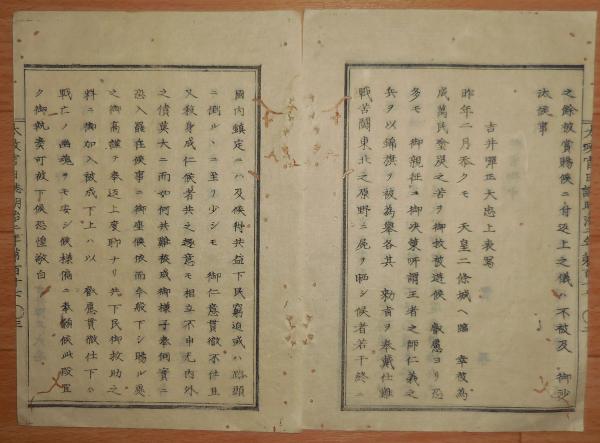 之餘被賞賜候ニ付返上之儀ハ不被及 御沙
汰候事
吉井彈正大忠上表寫
昨年二月忝クモ 天皇二條城ヘ臨 幸被為
成萬民塗炭之苦ヲ御救被遊候 叡慮ヨリ恐
多モ 御親征ニ御決葉所謂王者之師仁義之
兵ヲ以錦旗ヲ被為擧各其 勅旨ヲ奉戴仕難
戰苦鬪東北之原野ニ屍ヲ晒シ候者若干終ニ
國内鎮定ニハ及候得共益下民窮迫或ハ路頭
ニ倒ル丶ニ至リ少シモ 御仁意貫徹不仕且
又殺身成仁候者共之趣意モ相立不申尤内外
之債莫大ニ而如何共難被成御樣子奉伺實ニ
恐入罷在候事ニ御座候依而奉願下シ賜ル處
之御高禄ヲ奉返上度聊ナリ共下民御救助之
料ニ御加入被成下上ハ以 叡慮貫徹仕下ハ
戰亡ノ幽魂ヲモ安シ候樣偏ニ奉願候此段宜
ク御執奏可被下候恐惶敬白
太政官日誌明治二年第百十七 〇三